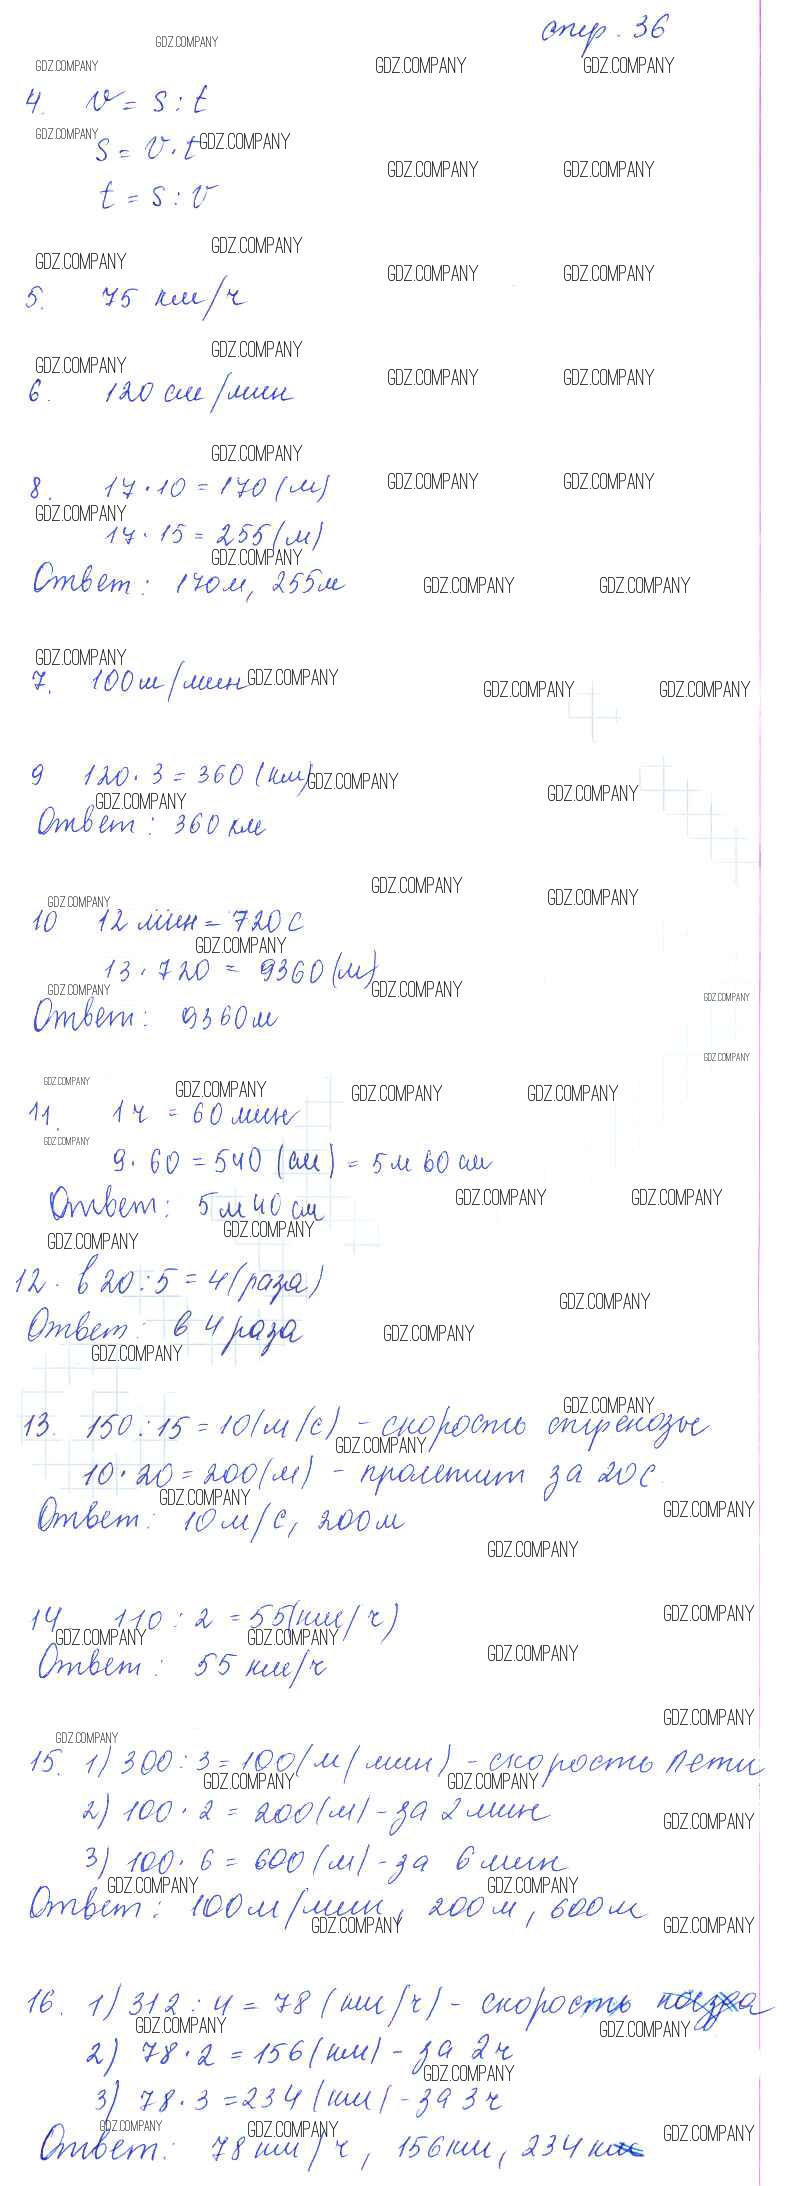 стр. 36
4. v = s : t
s = v · t
t = s : v
5. 75 км/ч
6. 120 см/мин
8. 17 · 10 = 170 (м)
17 · 15 = 255 (м)
Ответ: 170 м, 255 м
7. 100 м/мин
9 120 · 3 = 360 (км)
Ответ: 360 км
10 12 мин = 720 с
13 · 720 = 9360 (м)
Ответ: 9360 м
11. 1 ч = 60 мин
9 · 60 = 540 (см) = 5 м 60 см
Ответ: 5 м 40 см
12. в 20 : 5 = 4 (раза)
Ответ: в 4 раза
13. 150 : 15 = 10 (м/с) - скорость стрекозы
10 · 20 = 200 (м) - пролетит за 20 с.
Ответ: 10 м/с, 200 м
14 110 : 2 = 55 (км/ч)
Ответ: 55 км/ч
15. 1) 300 : 3 = 100 (м/мин) - скорость Пети
2) 100 · 2 = 200 (м) - за 2 мин
3) 100 · 6 = 600 (м) - за 6 мин
Ответ: 100 м/мин, 200 м, 600 м
16. 1) 312 : 4 = 78 (км/ч) - скорость поезда
2) 78 · 2 = 156 (км) - за 2 ч
3) 78 · 3 = 234 (км) - за 3 ч
Ответ: 78 км/ч, 156 км, 234 км
GDZ.COMPANY